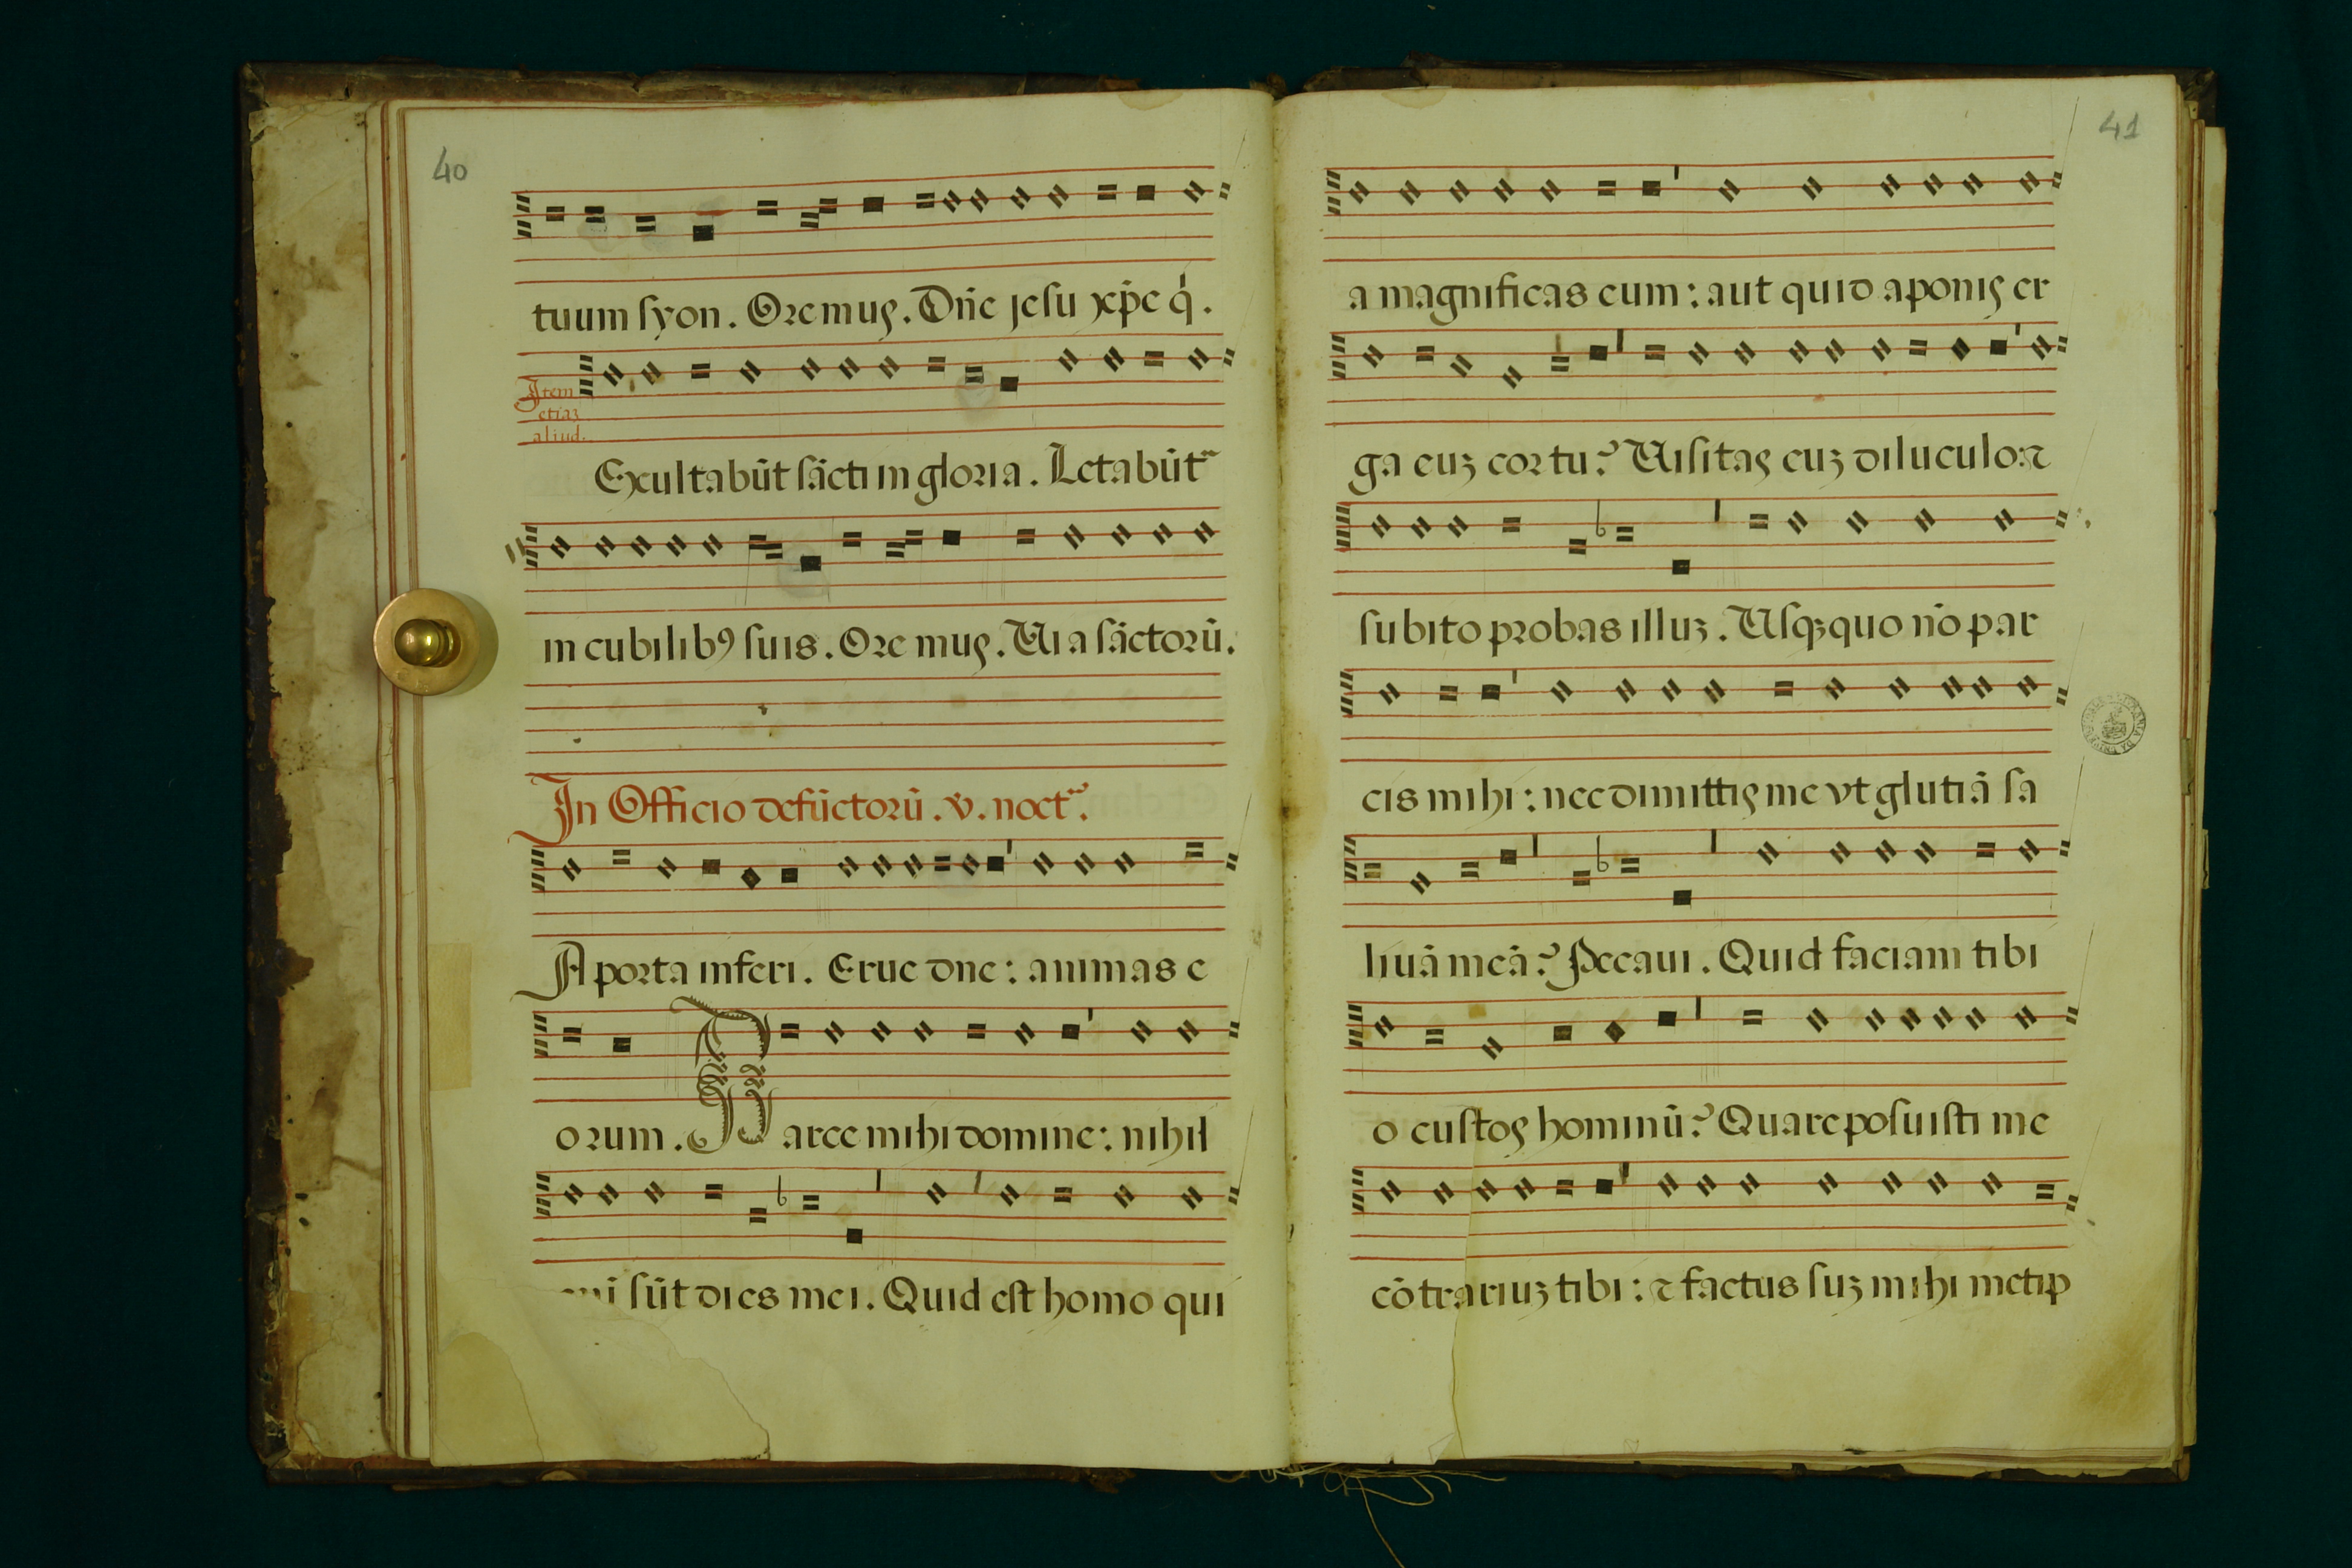 40
tuum syon. Oremus. Dñe jesu xp̃e q̇.
Item
etiaʒ
aliud.
Excultabūt sācti in gloria. Letabūt˜
in cubilibꝰ suis. Ore mus. Ui a sāctorū.
In Officio defūctorū. v. noct˜.
A porta inferi. Erue dne: animas e
orum. Parce mihi domine: nihil
sūt dies mei. Quid est homo qui
41
a magnificas eum: aut quid aponis er
ga euʒ cor tu? Uisitas euʒ diluculo: ⁊
subito probas illuʒ. Usqʒquo nō par
cis mihi: nec dimittis me vt glutiā sa
liuā meā? Peccaui. Quid faciam tibi
o custos hominū? Quare posuisti me
cōtrariuʒ tibi: ⁊ factus suʒ mihi metip